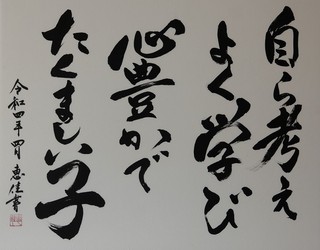 自ら考え
よく学び
心豊かで
たくましい子
令和四年四月 恵佳書